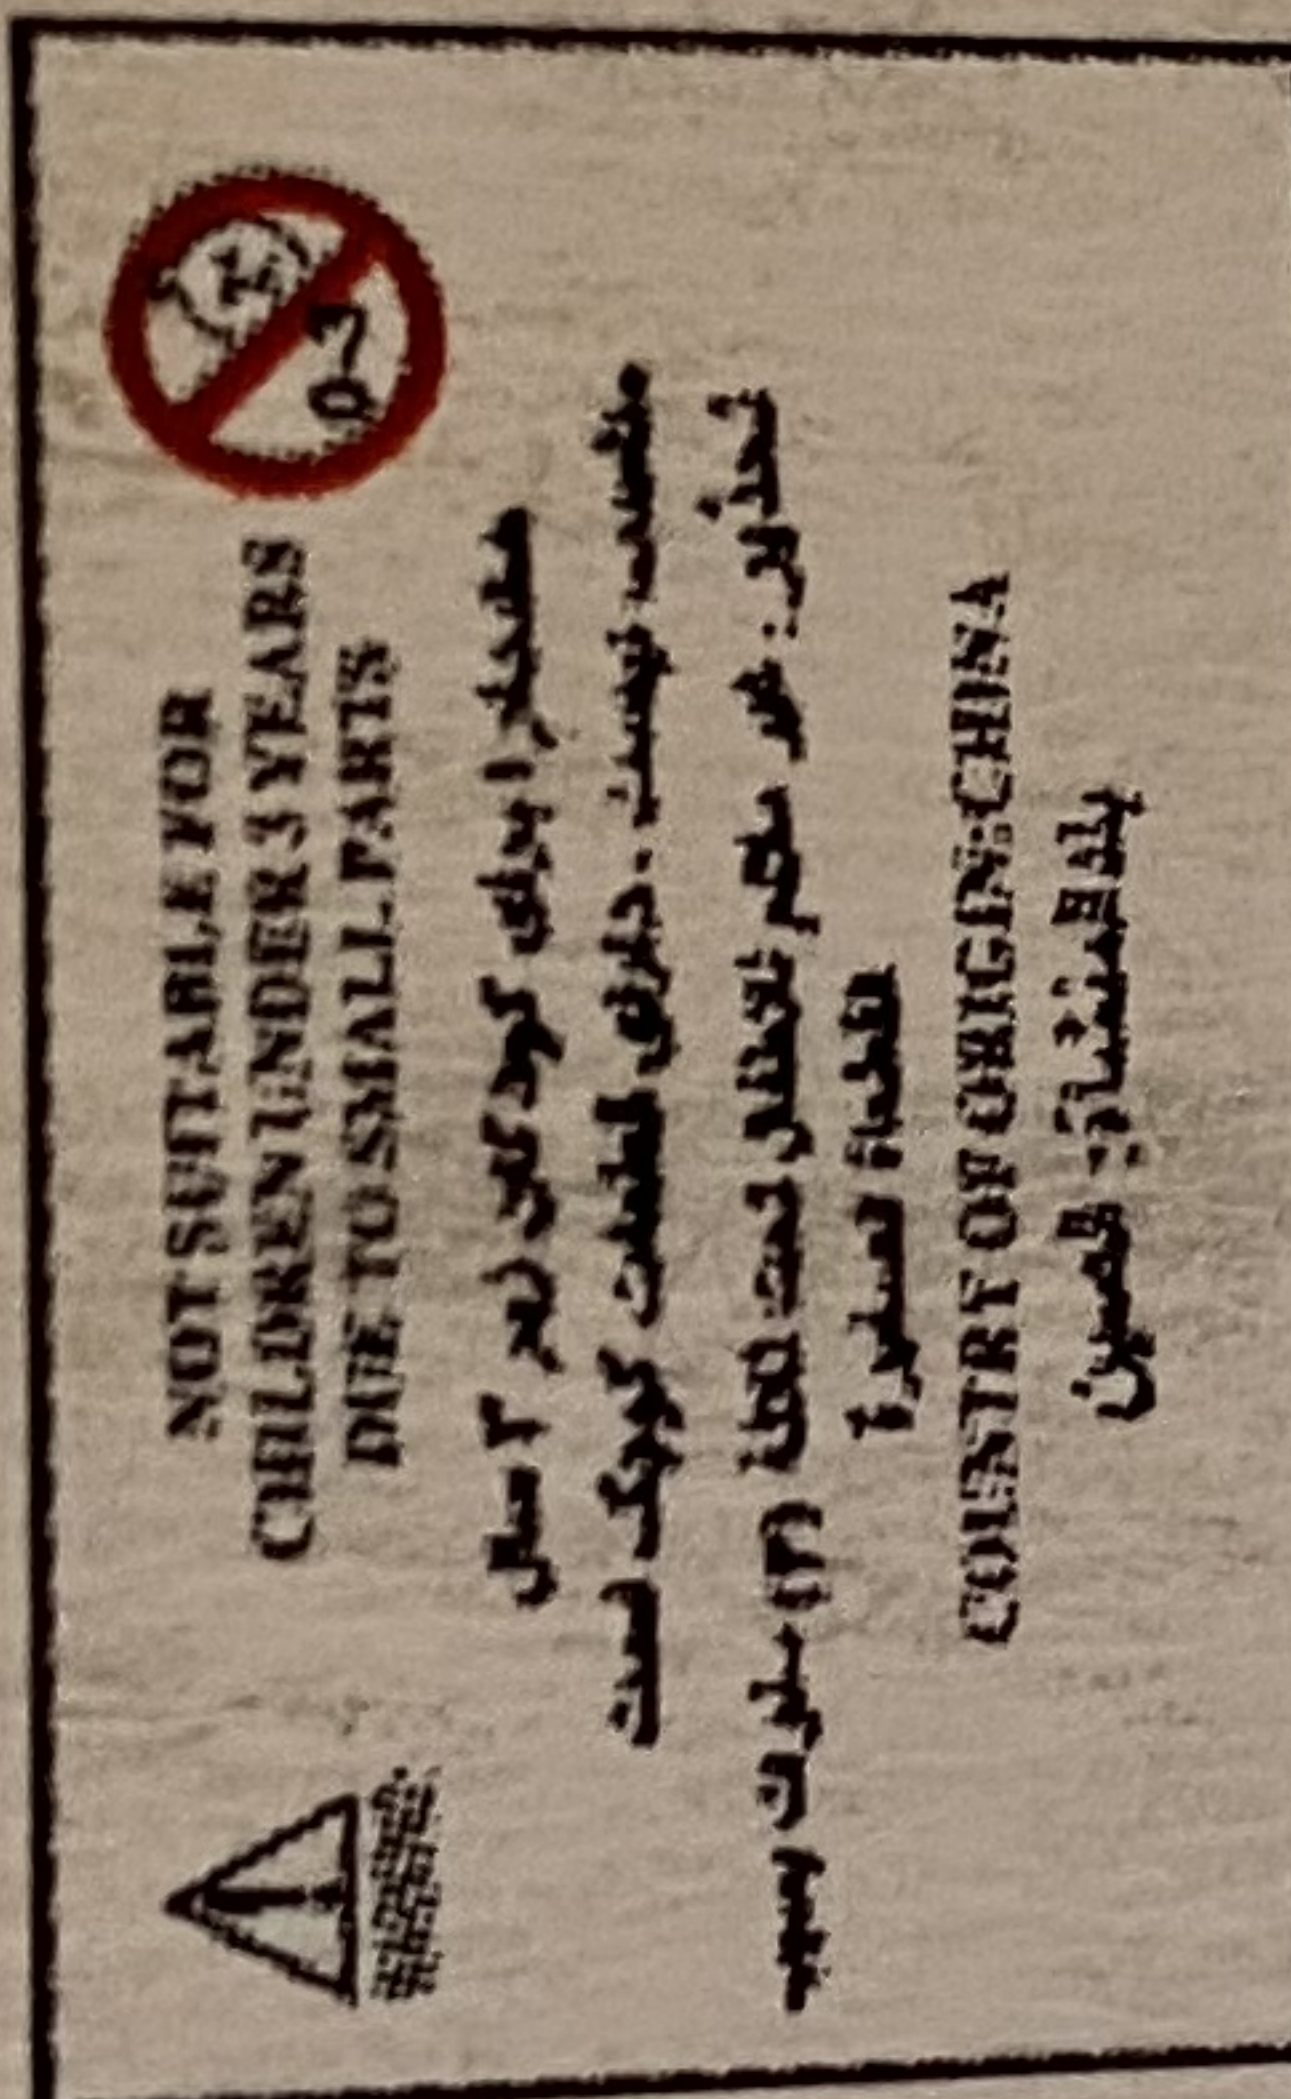 0-3
NOT SUITABLE FOR
CHILDREN UNDER 3 YEARS
DUE TO SMALL PARTS
برای کودکان زیر ۳ سال
مناسب نیست . دارای قطعات کوچک است
تحذير : غير ملائم للأطفال تحت ثلاثة (٣) سنوات بسبب
صغيرة
COUNTRY OF ORIGIN:CHINA
بلد المنشأ: الصين